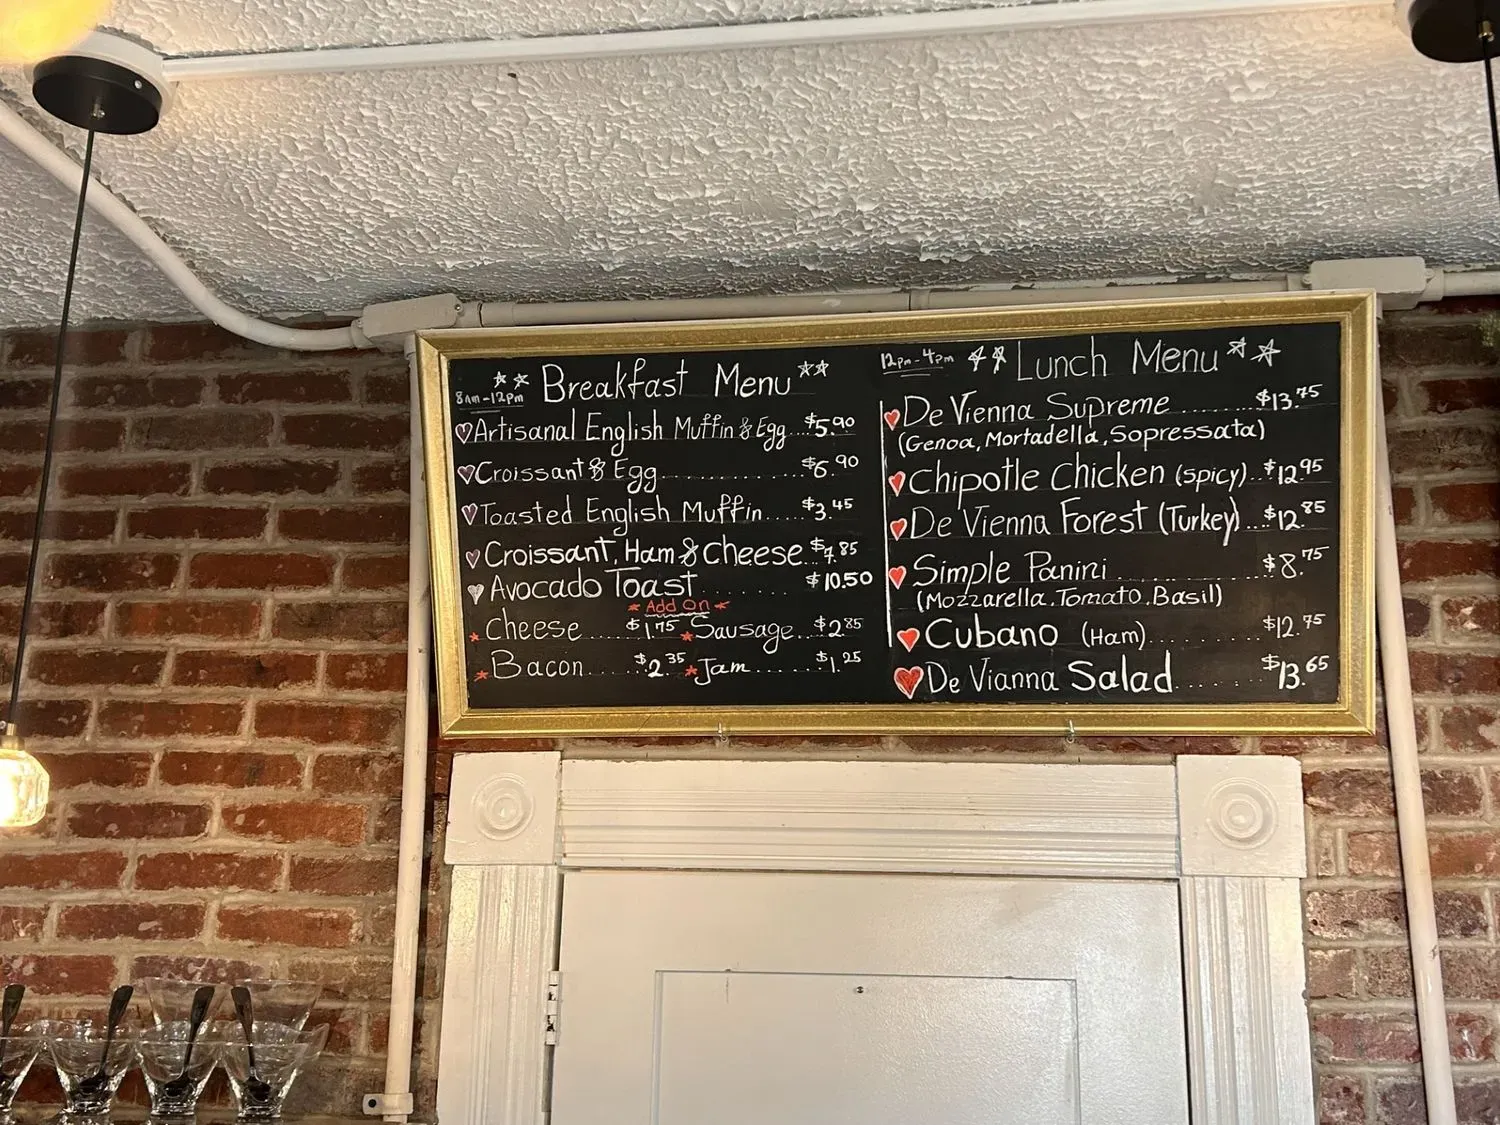 Breakfast Menu
8am-12pm
Artisanal English Muffin & Egg...$5.90
Croissant & Egg..............$6.90
Toasted English Muffin......$3.45
Croissant, Ham & Cheese..$7.85
Avocado Toast ......$10.50
Add On
Cheese.....$1.75 Sausage..$2.85
Bacon.....$2.35 Jam......$1.25
12pm-4pm Lunch Menu
De Vienna Supreme........$13.75
(Genoa, Mortadella, Sopressata)
Chipotle Chicken (spicy)..$12.95
De Vienna Forest (Turkey)...$12.85
Simple Panini............$8.75
(Mozzarella, Tomato, Basil)
Cubano (Ham)..........$12.75
De Vianna Salad.......$13.65